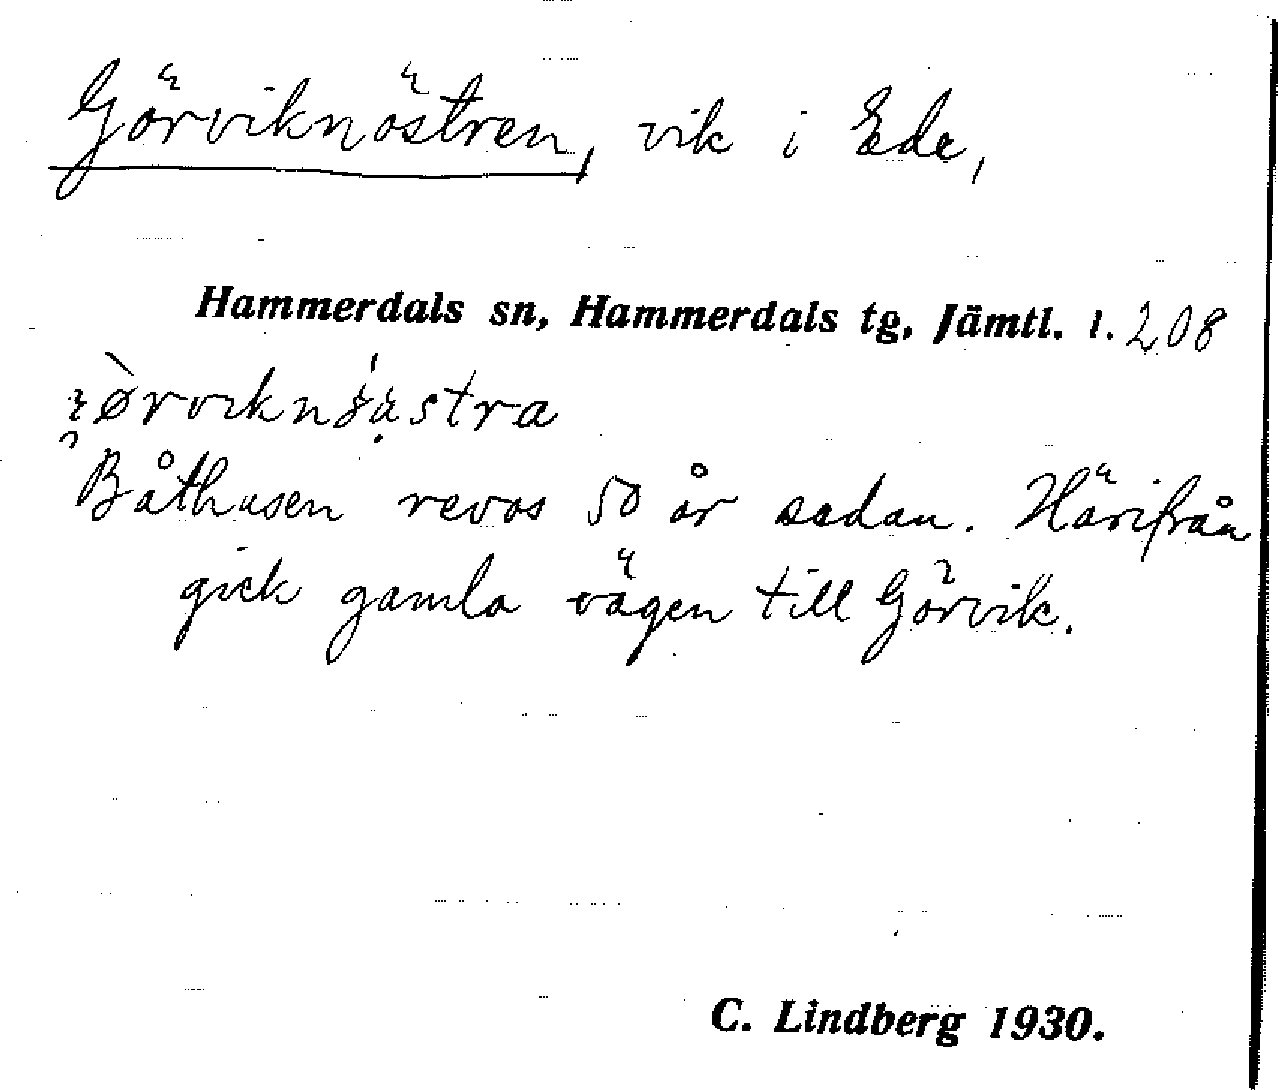 Görviknöstren, vik i Ede,
Hammerdals sn, Hammerdals tg, Jämtl. l. 208
Båthusen revos 50 år sedan. Härifrån
gick gamla vägen till Görvik.
C. Lindberg 1930.